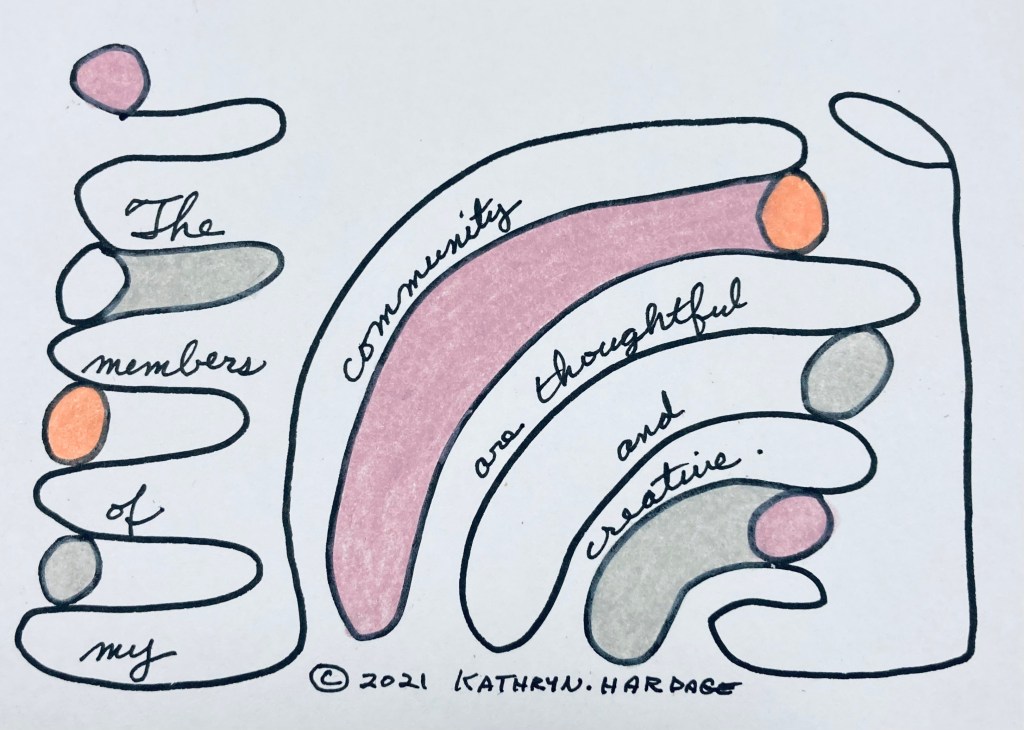 The
members
of
my
community
are thoughtful
and
creative.
© 2021 KATHRYN. HARDAGE